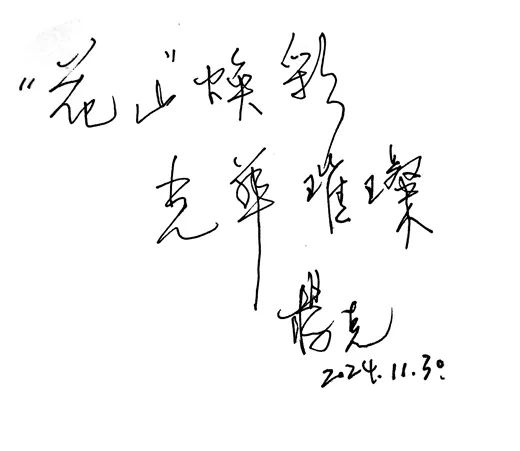 “花山”焕彩
光华璀璨
杨克
2024.11.30.